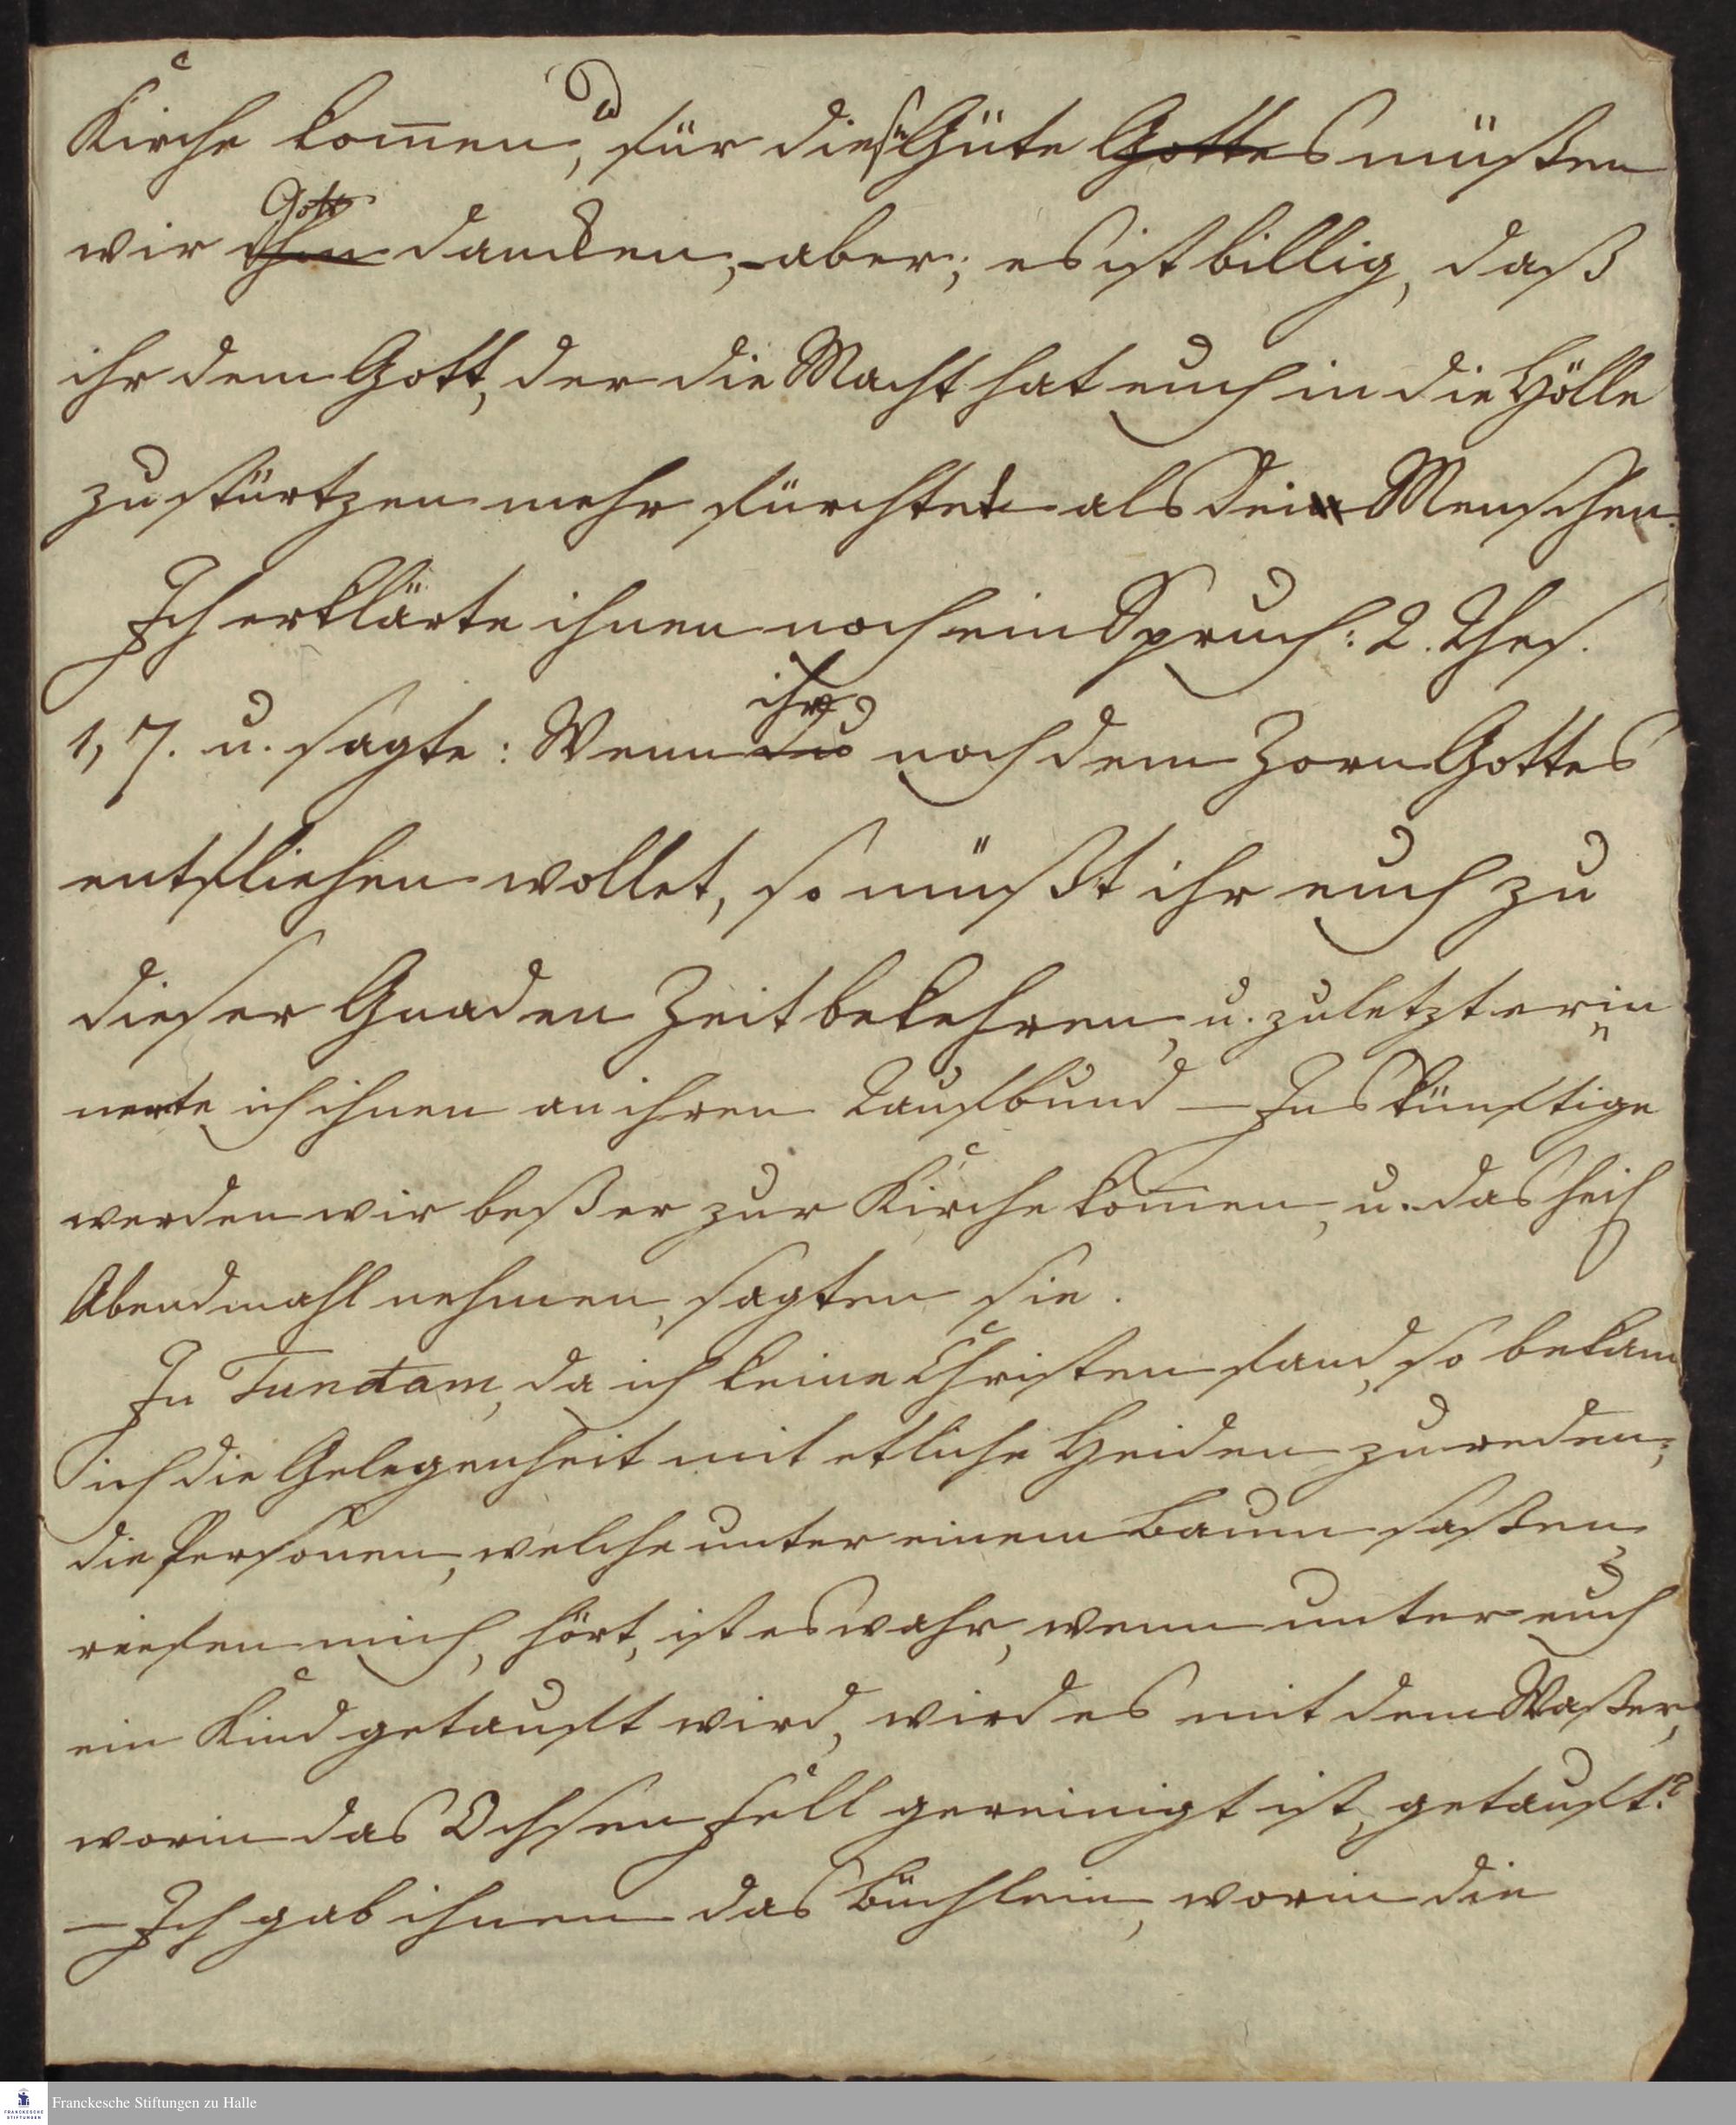 Kirche kom̄en, für diese Güte Gottes müßen
wir Gott ihm dancken, aber; es ist billig, daß
ihr dem Gott, der die Macht hat euch in die Hölle
zu stürtzen mehr fürchtet als die Menschen.
Ich erklärte ihnen noch ein Spruch: 2. Thes.
1, 7. u. sagte: Wenn ihr du noch dem Zorn Gottes
entfliehen wollet, so müßt ihr euch zu
dieser Gnaden Zeit bekehren, u. zuletzt erin
nerte ich ihnen an ihren Taufbund — Ins künftige
werden wir beßer zur Kirche kom̄en, u. das heil
Abendmahl nehmen, sagten sie.
In Tundam, da ich keine Christen fand, so bekam
ich die Gelegenheit mit etliche Heiden zu reden;
die Personen, welche unter einem Baum saßen,
riefen mich, hört, ist es wahr, wenn unter euch
ein Kind getauft wird, wird es mit dem Waßer,
worin das Ochsen fell gereinigt ist, getauft?
— Ich gab ihnen das Büchlein, worin die
FRANCKESCHE STIFTUNGEN
Franckesche Stiftungen zu Halle